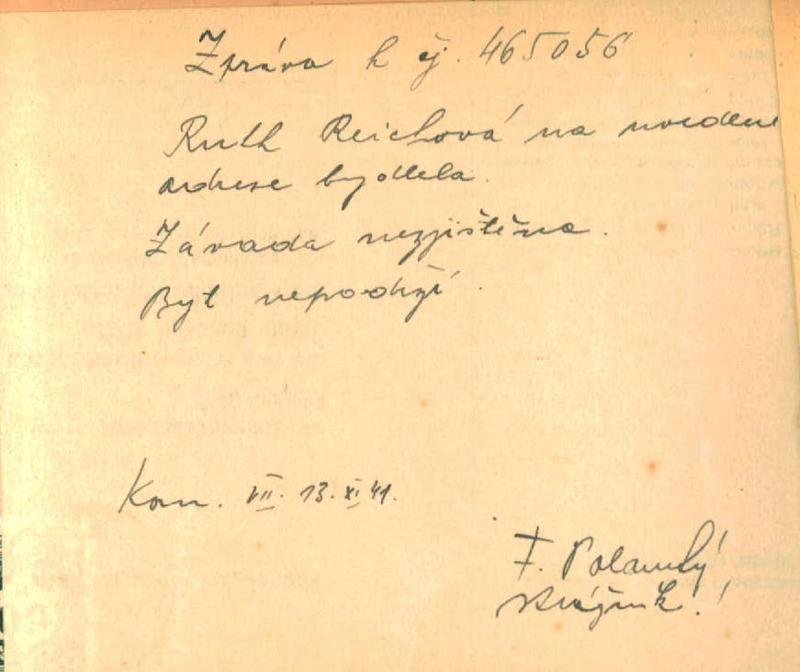 Zpráva k čj. 465056
Ruth Reichová na uvedené
adrese bydlela.
Závada nezjištěna.
Byt nepodrží.
Kom. VII. 13. XI. 41.
F. Polanský
strážník!